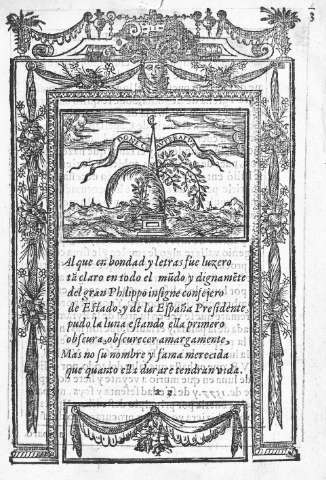 3
Al que en bondad y letras fue luzero
tã claro en todo el mũdo y dignamẽte
del gran Philippo insigne consejero
de Estado, y de la España Presidente,
pudo la luna estando ella primero
obscura, obscurecer amargamente,
Mas no su nombre y fama merecida
que quanto ella durare tendrán vida.